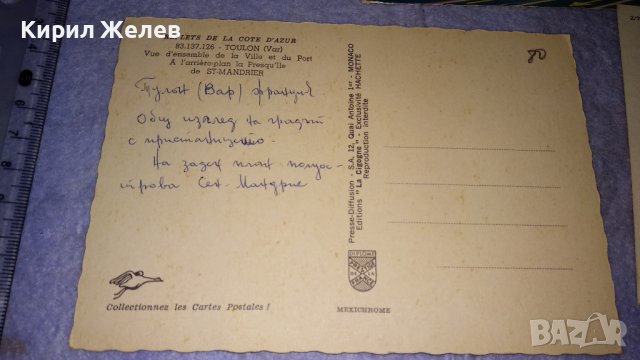 Кирил Желев
LETS DE LA COTE D'AZUR
83.137.126 - TOULON (Var)
Vue d'ensemble de la Ville et du Port
A l'arrière-plan la Presqu'île
de ST-MANDRIER
80
Тулон (Вар) Франция
Общ изглед на градът
с пристанището.
На заден план полуос
трова Сен-Мандрие
Presse-Diffusion - S.A. 12, Quai Antoine 1er - MONACO
Editions "La Cigogne" - Exclusivité HACHETTE
Reproduction interdite
DIPLOME
PRESTIGE
DE LA
FRANCE
Collectionnez les Cartes Postales !
MEXICHROME
BAZAR.bg